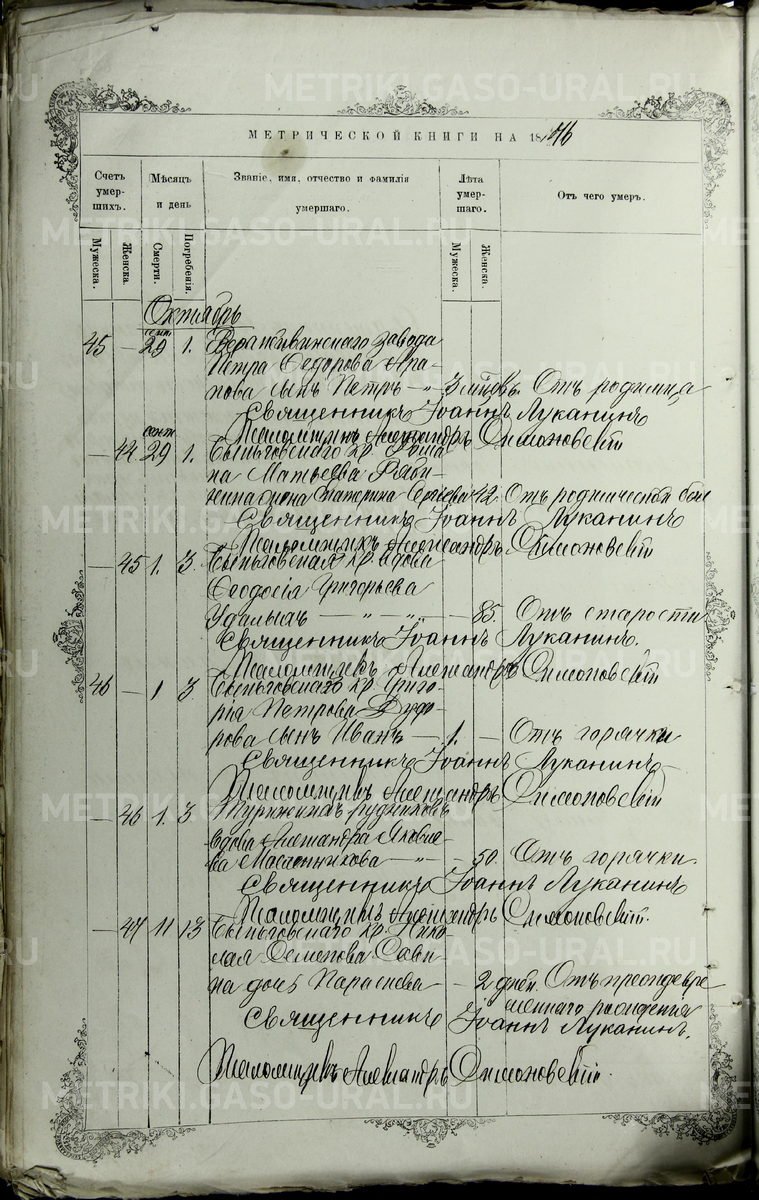 METRIKI.GASO-URAL.RU
МЕТРИЧЕСКОЙ КНИГИ НА 18
Счетъ умер-шихъ. Мѣсяцъ и день Званіе, имя, отчество и фамилія умершаго. Лѣта умер-шаго. Отъ чего умеръ.
Мужеска. Женска. Смерти. Погребенія. Мужеска. Женска.
Октябрь
сент.
45 — 29 1. завода
Петра Федорова
сынъ Петръ — " 3 Отъ родимца
Священникъ Іоаннъ Луканинъ
Псаломщикъ Александръ Симановскій
сент.
— 44 29 1. Быньговскаго кр.
на Матвеева
жена Екатерина Сергеева 42. Отъ родильической боле
Священникъ Іоаннъ Луканинъ
Псаломщикъ Александръ Симановскій
— 45 1. 3. Быньговская кр. вдова
Феодосія Григорьева
Удалыхъ — " — " — 85. Отъ старости
Священникъ Іоаннъ Луканинъ.
Псаломщикъ Александръ Симановскій
46 — 1 3. Быньговскаго кр. Григо-
рія Петрова
рова сынъ Иванъ — 1. — Отъ горячки
Священникъ Іоаннъ Луканинъ
Псаломщикъ Александръ Симановскій
— 46 1. 3
вдова Александра Яковле-
ва Масленникова — " — 50. Отъ горячки
Священникъ Іоаннъ Луканинъ
Псаломщикъ Александръ Симановскій.
— 47 11 13 Быньговскаго кр. Нико-
лая Семенова Сави
на дочь Параскева — 2 дней. Отъ преждевре
меннаго рожденія
Священникъ Іоаннъ Луканинъ.
Псаломщикъ Александръ Симановскій.